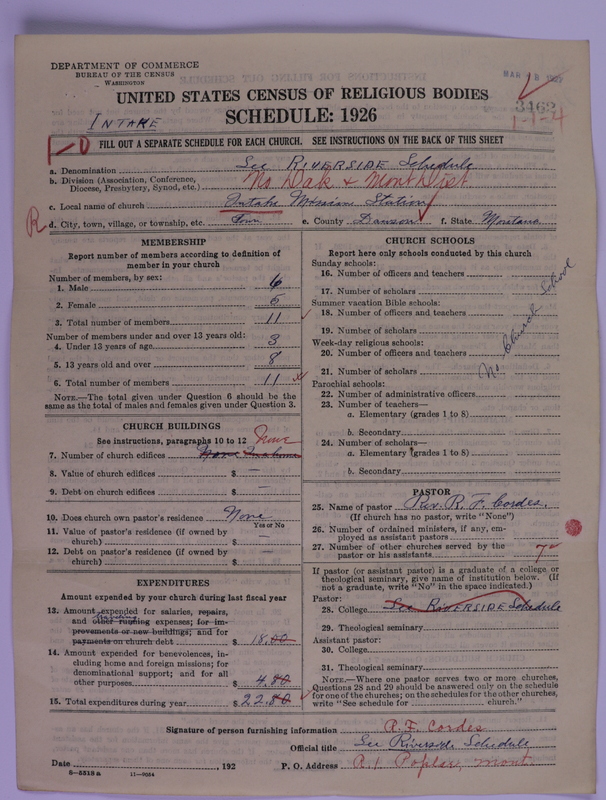 DEPARTMENT OF COMMERCE
BUREAU OF THE CENSUS
WASHINGTON
MAR 18
UNITED STATES CENSUS OF RELIGIOUS BODIES
SCHEDULE: 1926
3462
1-1-4
INTAKE
FILL OUT A SEPARATE SCHEDULE FOR EACH CHURCH. SEE INSTRUCTIONS ON THE BACK OF THIS SHEET
a. Denomination See RIVERSIDE Schedule
b. Division (Association, Conference, Diocese, Presbytery, Synod, etc.) No Dak & Mont Dist.
c. Local name of church Intake Mission Station
R
d. City, town, village, or township, etc. Town e. County Dawson f. State Montana
MEMBERSHIP
Report number of members according to definition of member in your church
Number of members, by sex:
1. Male 6
2. Female 5
3. Total number of members 11
Number of members under and over 13 years old:
4. Under 13 years of age 3
5. 13 years old and over 8
6. Total number of members 11
NOTE.—The total given under Question 6 should be the same as the total of males and females given under Question 3.
CHURCH BUILDINGS
See instructions, paragraphs 10 to 12
None
7. Number of church edifices
8. Value of church edifices $ —
9. Debt on church edifices $ —
10. Does church own pastor's residence None
Yes or No
11. Value of pastor's residence (if owned by church) $ —
12. Debt on pastor's residence (if owned by church) $ —
EXPENDITURES
Amount expended by your church during last fiscal year
13. Amount expended for salaries, repairs, and other running expenses; for improvements or new buildings; and for payments on church debt $ 18.00
14. Amount expended for benevolences, including home and foreign missions; for denominational support; and for all other purposes $ 4.80
15. Total expenditures during year $ 22.80
CHURCH SCHOOLS
Report here only schools conducted by this church
Sunday schools:
16. Number of officers and teachers
17. Number of scholars
Summer vacation Bible schools:
18. Number of officers and teachers
19. Number of scholars
Week-day religious schools:
20. Number of officers and teachers
21. Number of scholars
No Church School
Parochial schools:
22. Number of administrative officers
23. Number of teachers—
a. Elementary (grades 1 to 8)
b. Secondary
24. Number of scholars—
a. Elementary (grades 1 to 8)
b. Secondary
PASTOR
25. Name of pastor Rev. R. F. Cordes.
(If church has no pastor, write "None")
26. Number of ordained ministers, if any, employed as assistant pastors
27. Number of other churches served by the pastor or his assistants 7
If pastor (or assistant pastor) is a graduate of a college or theological seminary, give name of institution below. (If not a graduate, write "No" in the space indicated.)
Pastor:
28. College See RIVERSIDE Schedule
29. Theological seminary
Assistant pastor:
30. College
31. Theological seminary
NOTE.—Where one pastor serves two or more churches, Questions 28 and 29 should be answered only on the schedule for one of the churches; on the schedules for the other churches, write "See schedule for church."
Signature of person furnishing information R. F. Cordes
Official title See Riverside Schedule
Date , 192 P. O. Address R.1 Poplar, Mont.
8—5519 a 11—9054